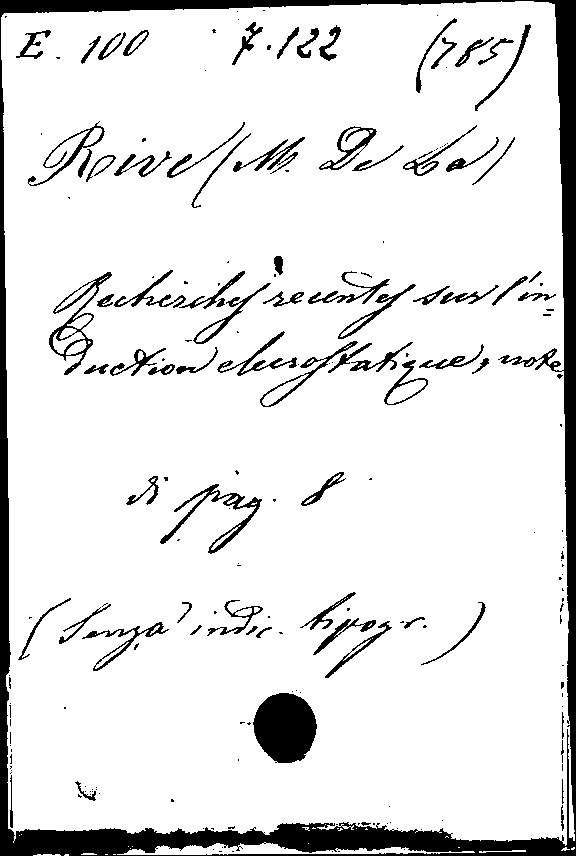 E. 100 7.122 (785)
Rive (M. De La)
Recherches recentes sur l'in=
duction elecrostatique, note.
di pag. 8
(Senza indic. tipogr.)